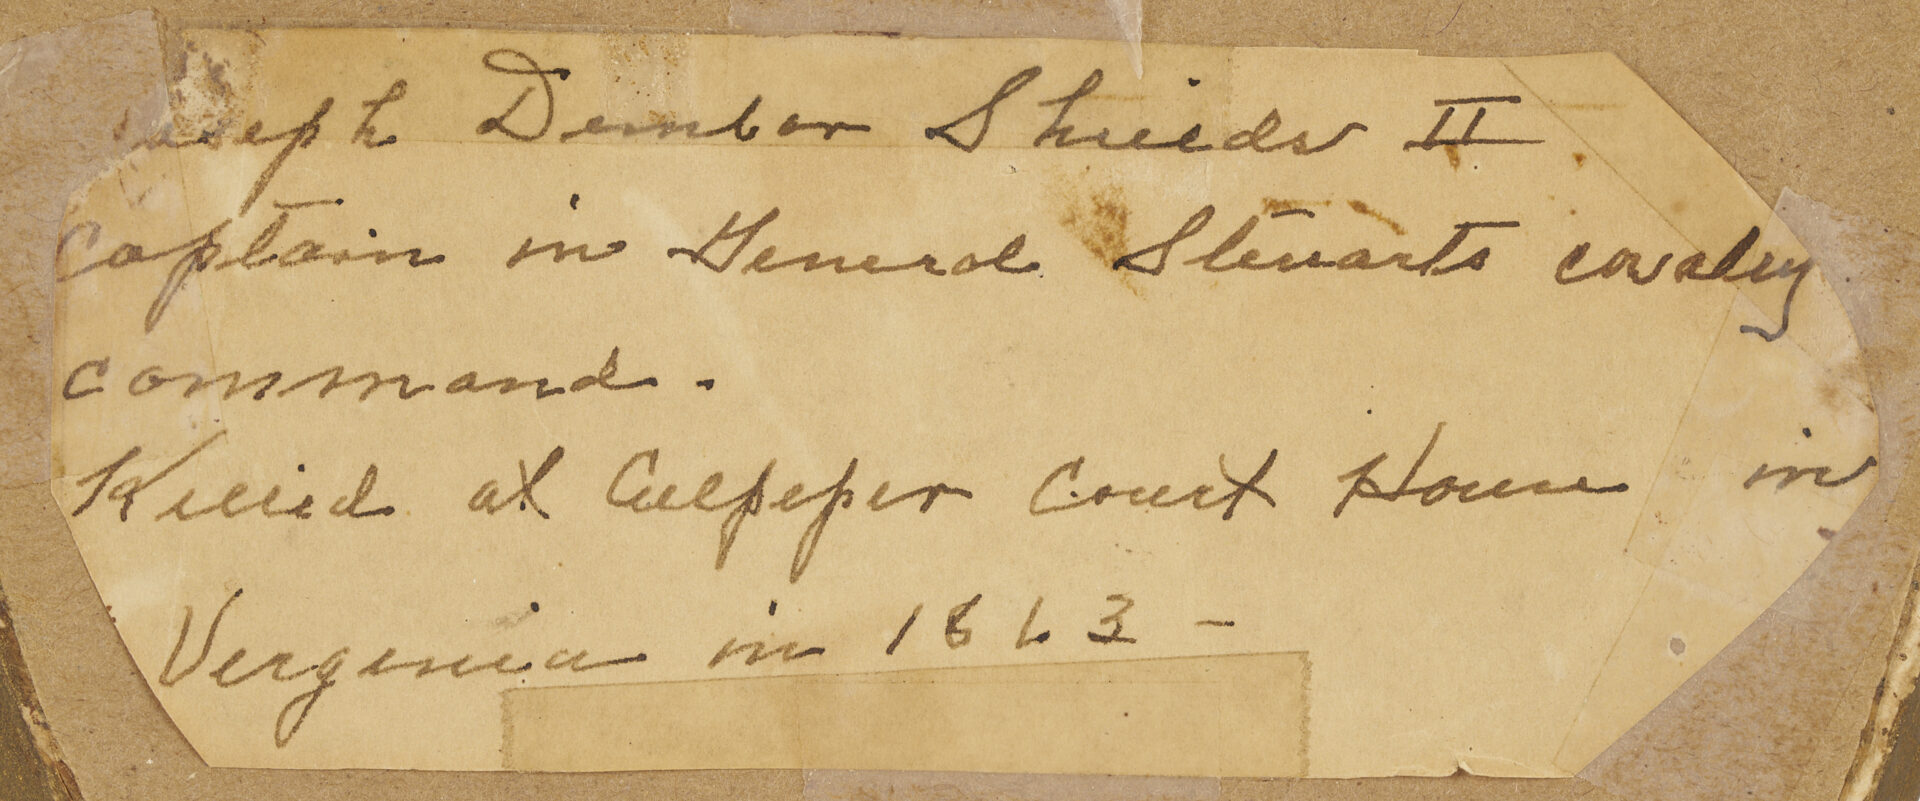 Joseph Dunbar Shields II
Captain in General Stewarts cavalry
command.
Killed at Culpeper Court House in
Verginia in 1863 -